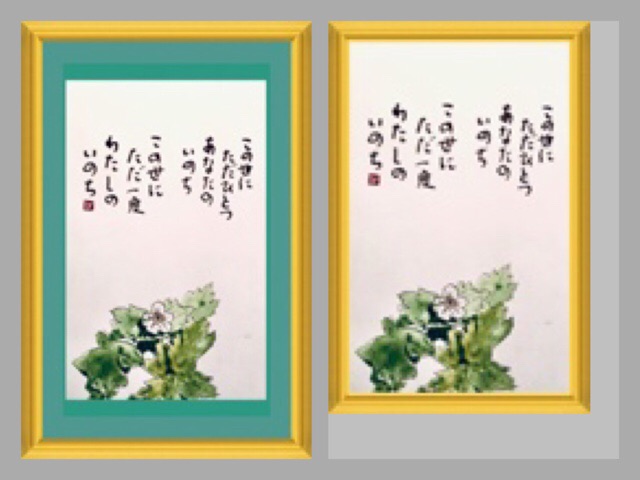 この世に
ただひとつ
あなたの
いのち
この世に
ただ一度
わたしの
いのち
この世に
ただひとつ
あなたの
いのち
この世に
ただ一度
わたしの
いのち